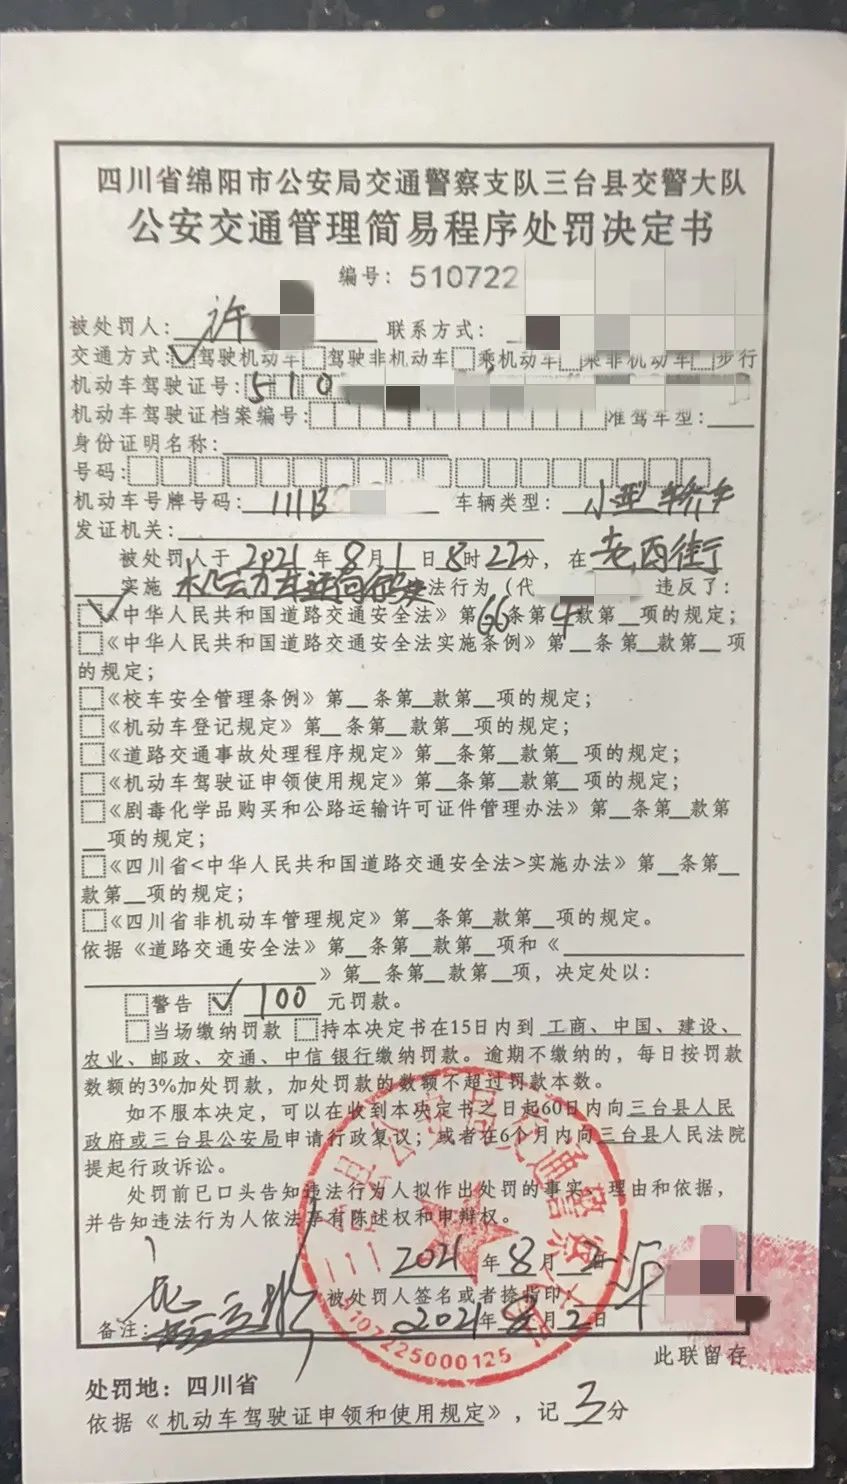 四川省绵阳市公安局交通警察支队三台县交警大队
公安交通管理简易程序处罚决定书
编号：510722
被处罚人：许 联系方式：
交通方式：驾驶机动车 驾驶非机动车 乘机动车 乘非机动车 步行
机动车驾驶证号：510
机动车驾驶证档案编号： 准驾车型：
身份证明名称：
号码：
机动车号牌号码：川B 车辆类型：小型轿车
发证机关：
被处罚人于2021年8月1日8时22分，在老西街
实施 法行为（代 违反了：
《中华人民共和国道路交通安全法》第66条第4款第__项的规定；
《中华人民共和国道路交通安全法实施条例》第__条第__款第__项
的规定；
《校车安全管理条例》第__条第__款第__项的规定；
《机动车登记规定》第__条第__款第__项的规定；
《道路交通事故处理程序规定》第__条第__款第__项的规定；
《机动车驾驶证申领使用规定》第__条第__款第__项的规定；
《剧毒化学品购买和公路运输许可证件管理办法》第__条第__款第
__项的规定；
《四川省<中华人民共和国道路交通安全法>实施办法》第__条第__
款第__项的规定；
《四川省非机动车管理规定》第__条第__款第__项的规定。
依据《道路交通安全法》第__条第__款第__项和《
》第__条第__款第__项，决定处以：
警告 100 元罚款。
当场缴纳罚款 持本决定书在15日内到 工商、中国、建设、
农业、邮政、交通、中信 银行缴纳罚款。逾期不缴纳的，每日按罚款
数额的3%加处罚款，加处罚款的数额不超过罚款本数。
如不服本决定，可以在收到本决定书之日起60日内向三台县人民
政府或三台县公安局申请行政复议；或者在6个月内向三台县人民法院
提起行政诉讼。
处罚前已口头告知违法行为人拟作出处罚的事实、理由和依据，
并告知违法行为人依法享有陈述权和申辩权。
2021年8月2日
被处罚人签名或者捺指印 许
备注： 2021年8月2日
5107225000125
此联留存
处罚地：四川省
依据《机动车驾驶证申领和使用规定》，记3分